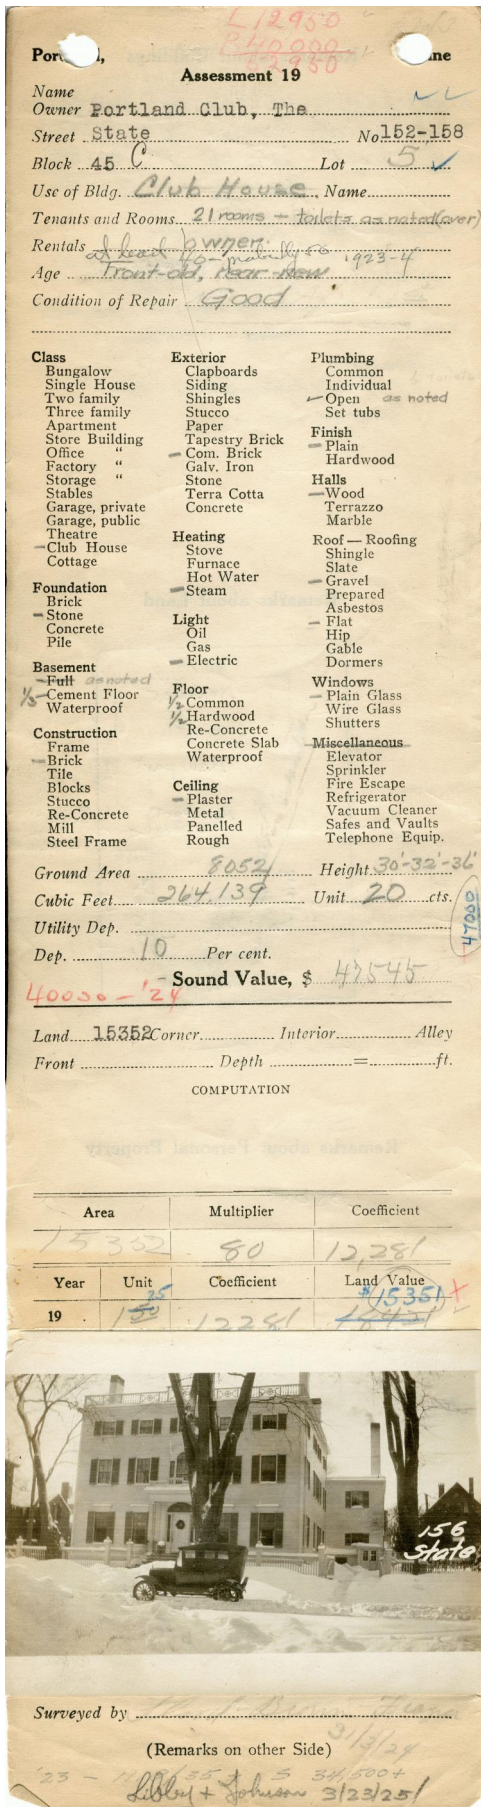 L 12950
B 40,000
52950
Portland, Maine
Assessment 19
Name
Owner Portland Club, The
Street State No 152-158
Block 45 C Lot 5
Use of Bldg. Club House Name
Tenants and Rooms 21 rooms - toilets as noted (over)
Rentals owner
at least 1923-4
Age Front-old, rear-new
Condition of Repair Good
Class
Bungalow
Single House
Two family
Three family
Apartment
Store Building
Office "
Factory "
Storage "
Stables
Garage, private
Garage, public
Theatre
Club House
Cottage
Foundation
Brick
Stone
Concrete
Pile
Basement
Full as noted
1/3 Cement Floor
Waterproof
Construction
Frame
Brick
Tile
Blocks
Stucco
Re-Concrete
Mill
Steel Frame
Exterior
Clapboards
Siding
Shingles
Stucco
Paper
Tapestry Brick
Com. Brick
Galv. Iron
Stone
Terra Cotta
Concrete
Heating
Stove
Furnace
Hot Water
Steam
Light
Oil
Gas
Electric
Floor
1/2 Common
1/2 Hardwood
Re-Concrete
Concrete Slab
Waterproof
Ceiling
Plaster
Metal
Panelled
Rough
Plumbing
Common
Individual
Open as noted
Set tubs
Finish
Plain
Hardwood
Halls
Wood
Terrazzo
Marble
Roof — Roofing
Shingle
Slate
Gravel
Prepared
Asbestos
Flat
Hip
Gable
Dormers
Windows
Plain Glass
Wire Glass
Shutters
Miscellaneous
Elevator
Sprinkler
Fire Escape
Refrigerator
Vacuum Cleaner
Safes and Vaults
Telephone Equip.
Ground Area 8052 Height 30'-32'-36'
Cubic Feet 264,139 Unit 20 cts.
Utility Dep.
47000
Dep. 10 Per cent.
Sound Value, $ 47545
40000 - '24
Land 15352 Corner Interior Alley
Front Depth = ft.
COMPUTATION
Area Multiplier Coefficient
15352 80 12,281
Year Unit Coefficient Land Value
25 $15351
19 12281
156
State
Surveyed by
31/3/24
(Remarks on other Side)
Libby + Johnson 3/23/25